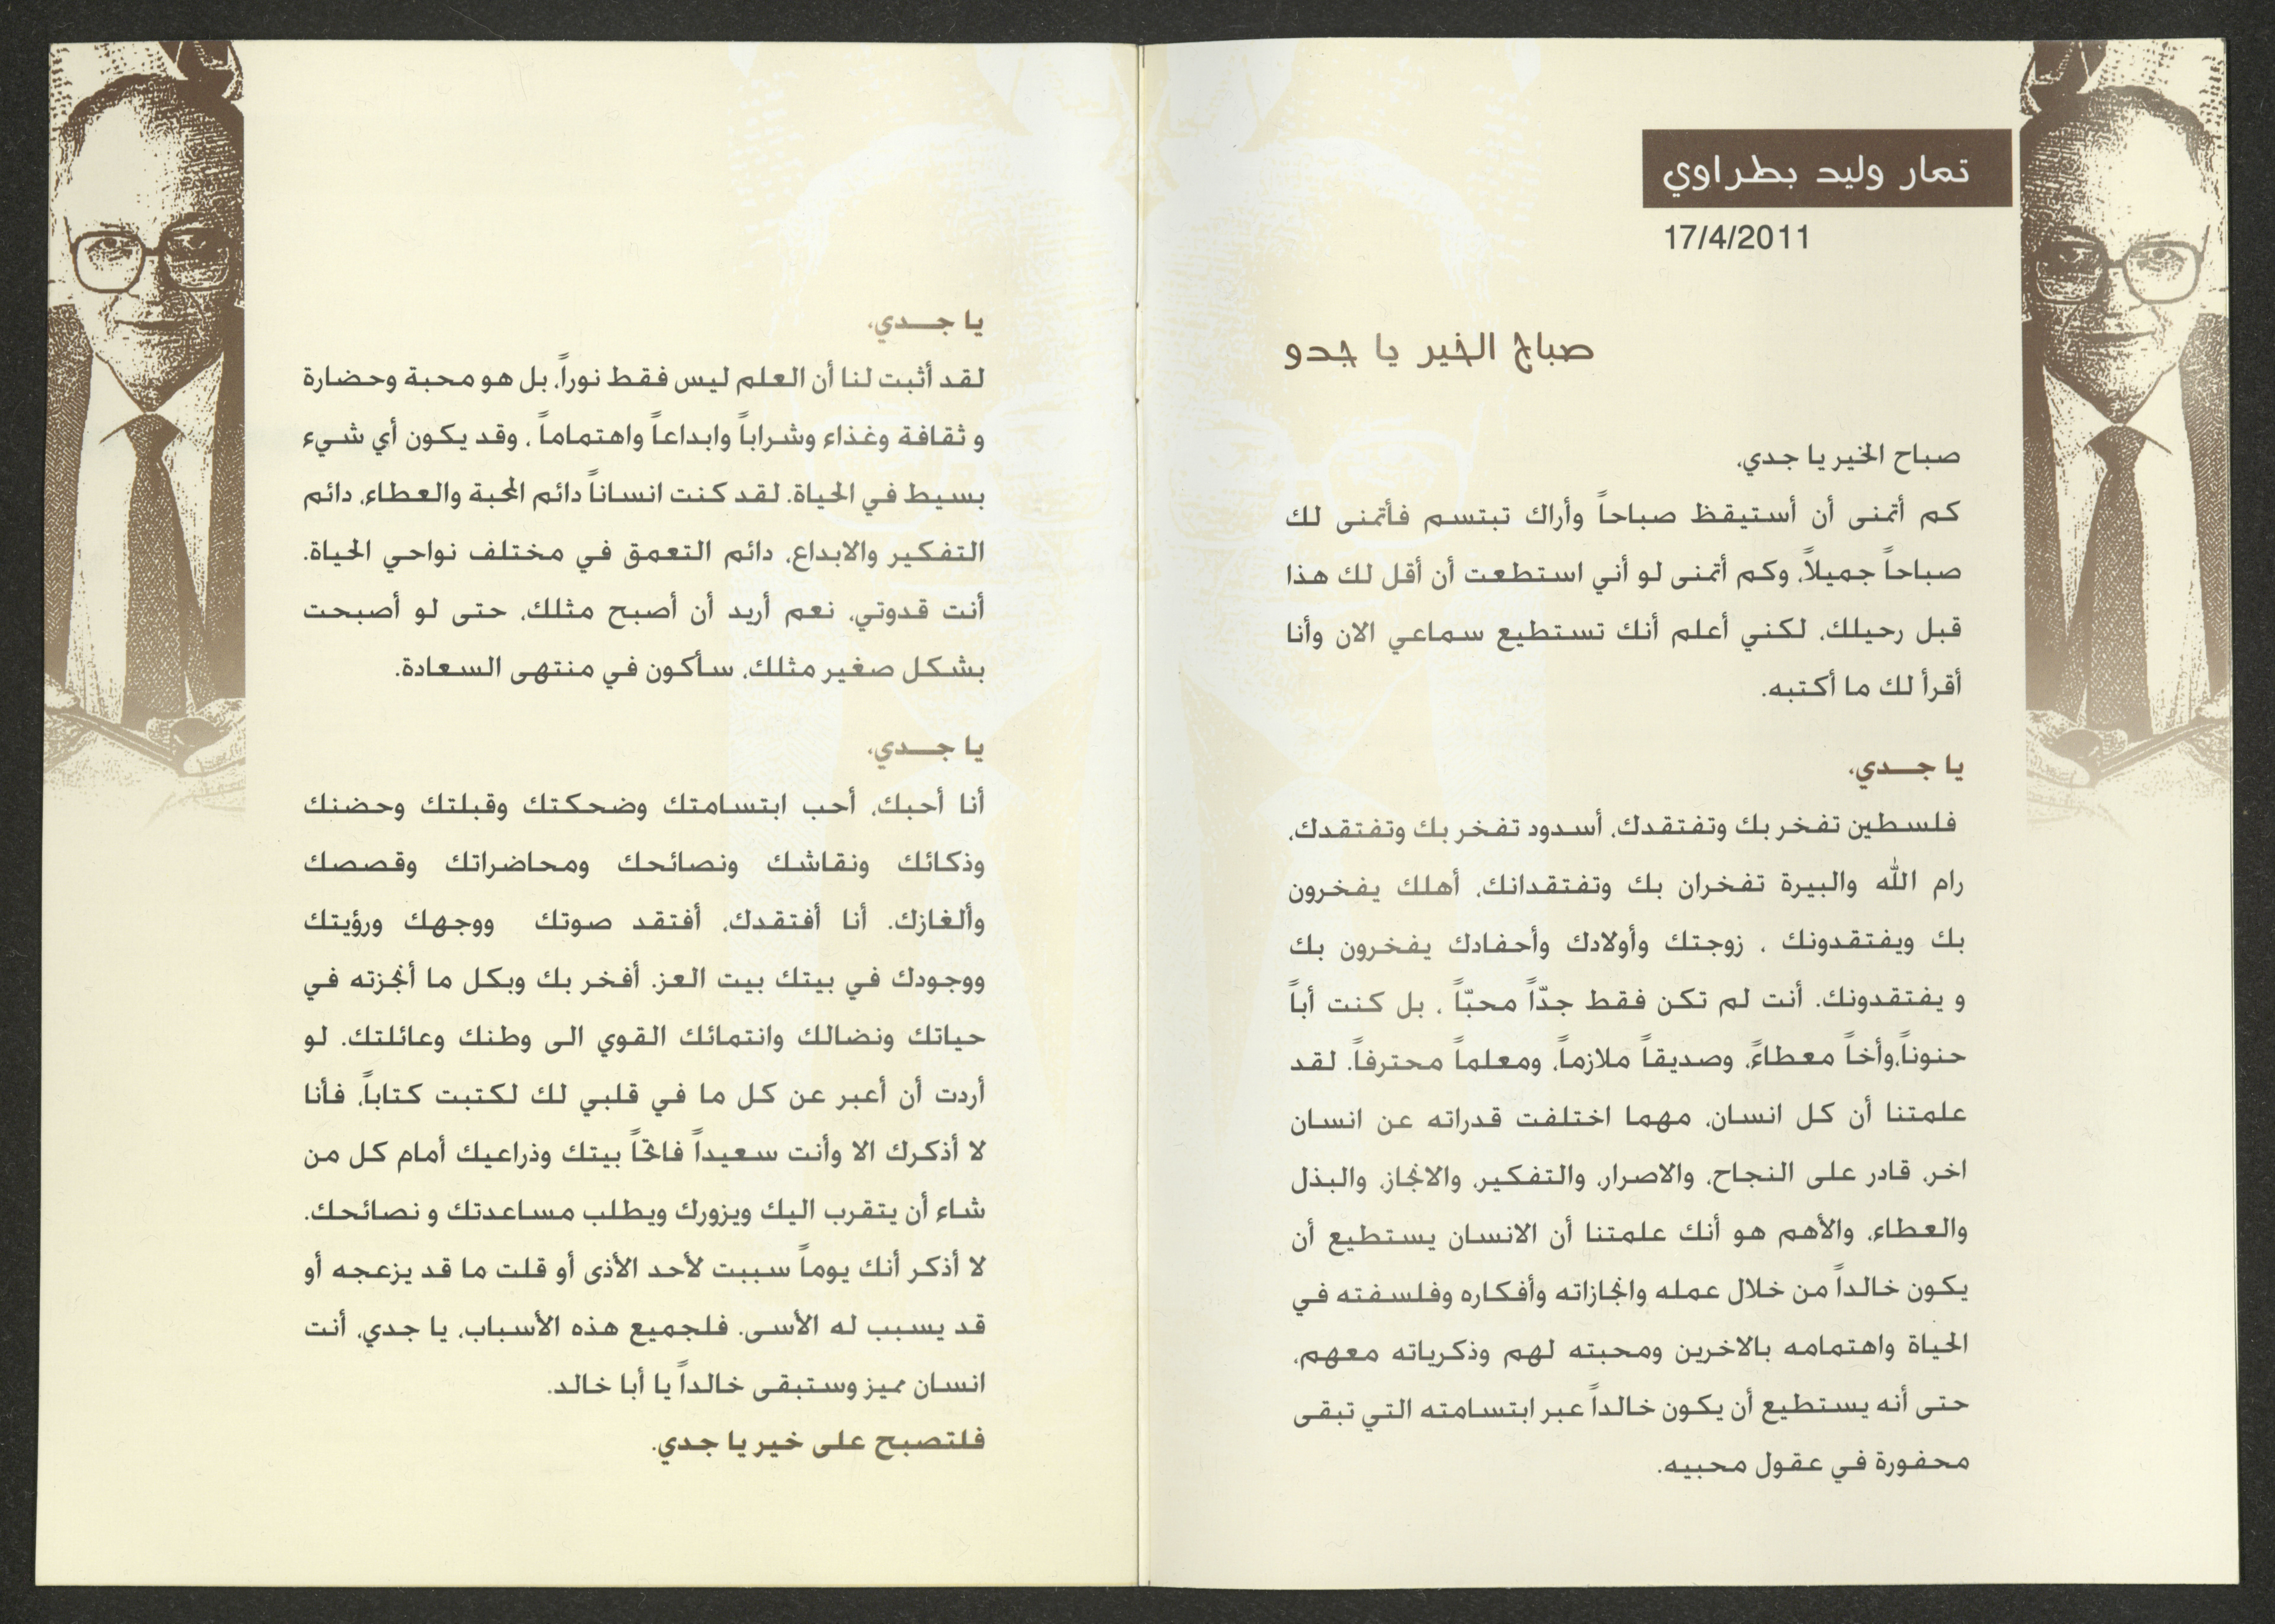 تمار وليد بطراوي
17/4/2011
صباح الخير يا جدو
صباح الخير يا جدي،
كم أتمنى أن أستيقظ صباحاً وأراك تبتسم فأتمنى لك
صباحاً جميلاً، وكم أتمنى لو أني استطعت أن أقل لك هذا
قبل رحيلك، لكني أعلم أنك تستطيع سماعي الان وأنا
أقرأ لك ما أكتبه.
يا جـــدي،
فلسطين تفخر بك وتفتقدك، أسدود تفخر بك وتفتقدك،
رام الله والبيرة تفخران بك وتفتقدانك، أهلك يفخرون
بك ويفتقدونك ، زوجتك وأولادك وأحفادك يفخرون بك
و يفتقدونك. أنت لم تكن فقط جدّاً محبّاً ، بل كنت أباً
حنوناً،وأخاً معطاءً، وصديقاً ملازماً، ومعلماً محترفاً. لقد
علمتنا أن كل انسان، مهما اختلفت قدراته عن انسان
اخر، قادر على النجاح، والاصرار، والتفكير، والانجاز، والبذل
والعطاء، والأهم هو أنك علمتنا أن الانسان يستطيع أن
يكون خالداً من خلال عمله وانجازاته وأفكاره وفلسفته في
الحياة واهتمامه بالاخرين ومحبته لهم وذكرياته معهم،
حتى أنه يستطيع أن يكون خالداً عبر ابتسامته التي تبقى
محفورة في عقول محبيه.
يا جـــدي،
لقد أثبت لنا أن العلم ليس فقط نوراً، بل هو محبة وحضارة
و ثقافة وغذاء وشراباً وابداعاً واهتماماً ، وقد يكون أي شيء
بسيط في الحياة. لقد كنت انساناً دائم المحبة والعطاء، دائم
التفكير والابداع، دائم التعمق في مختلف نواحي الحياة.
أنت قدوتي، نعم أريد أن أصبح مثلك، حتى لو أصبحت
بشكل صغير مثلك، سأكون في منتهى السعادة.
يا جـــدي،
أنا أحبك، أحب ابتسامتك وضحكتك وقبلتك وحضنك
وذكائك ونقاشك ونصائحك ومحاضراتك وقصصك
وألغازك. أنا أفتقدك، أفتقد صوتك ووجهك ورؤيتك
ووجودك في بيتك بيت العز. أفخر بك وبكل ما أنجزته في
حياتك ونضالك وانتمائك القوي الى وطنك وعائلتك. لو
أردت أن أعبر عن كل ما في قلبي لك لكتبت كتاباً، فأنا
لا أذكرك الا وأنت سعيداً فاتحاً بيتك وذراعيك أمام كل من
شاء أن يتقرب اليك ويزورك ويطلب مساعدتك و نصائحك.
لا أذكر أنك يوماً سببت لأحد الأذى أو قلت ما قد يزعجه أو
قد يسبب له الأسى. فلجميع هذه الأسباب، يا جدي، أنت
انسان مميز وستبقى خالداً يا أبا خالد.
فلتصبح على خير يا جدي.